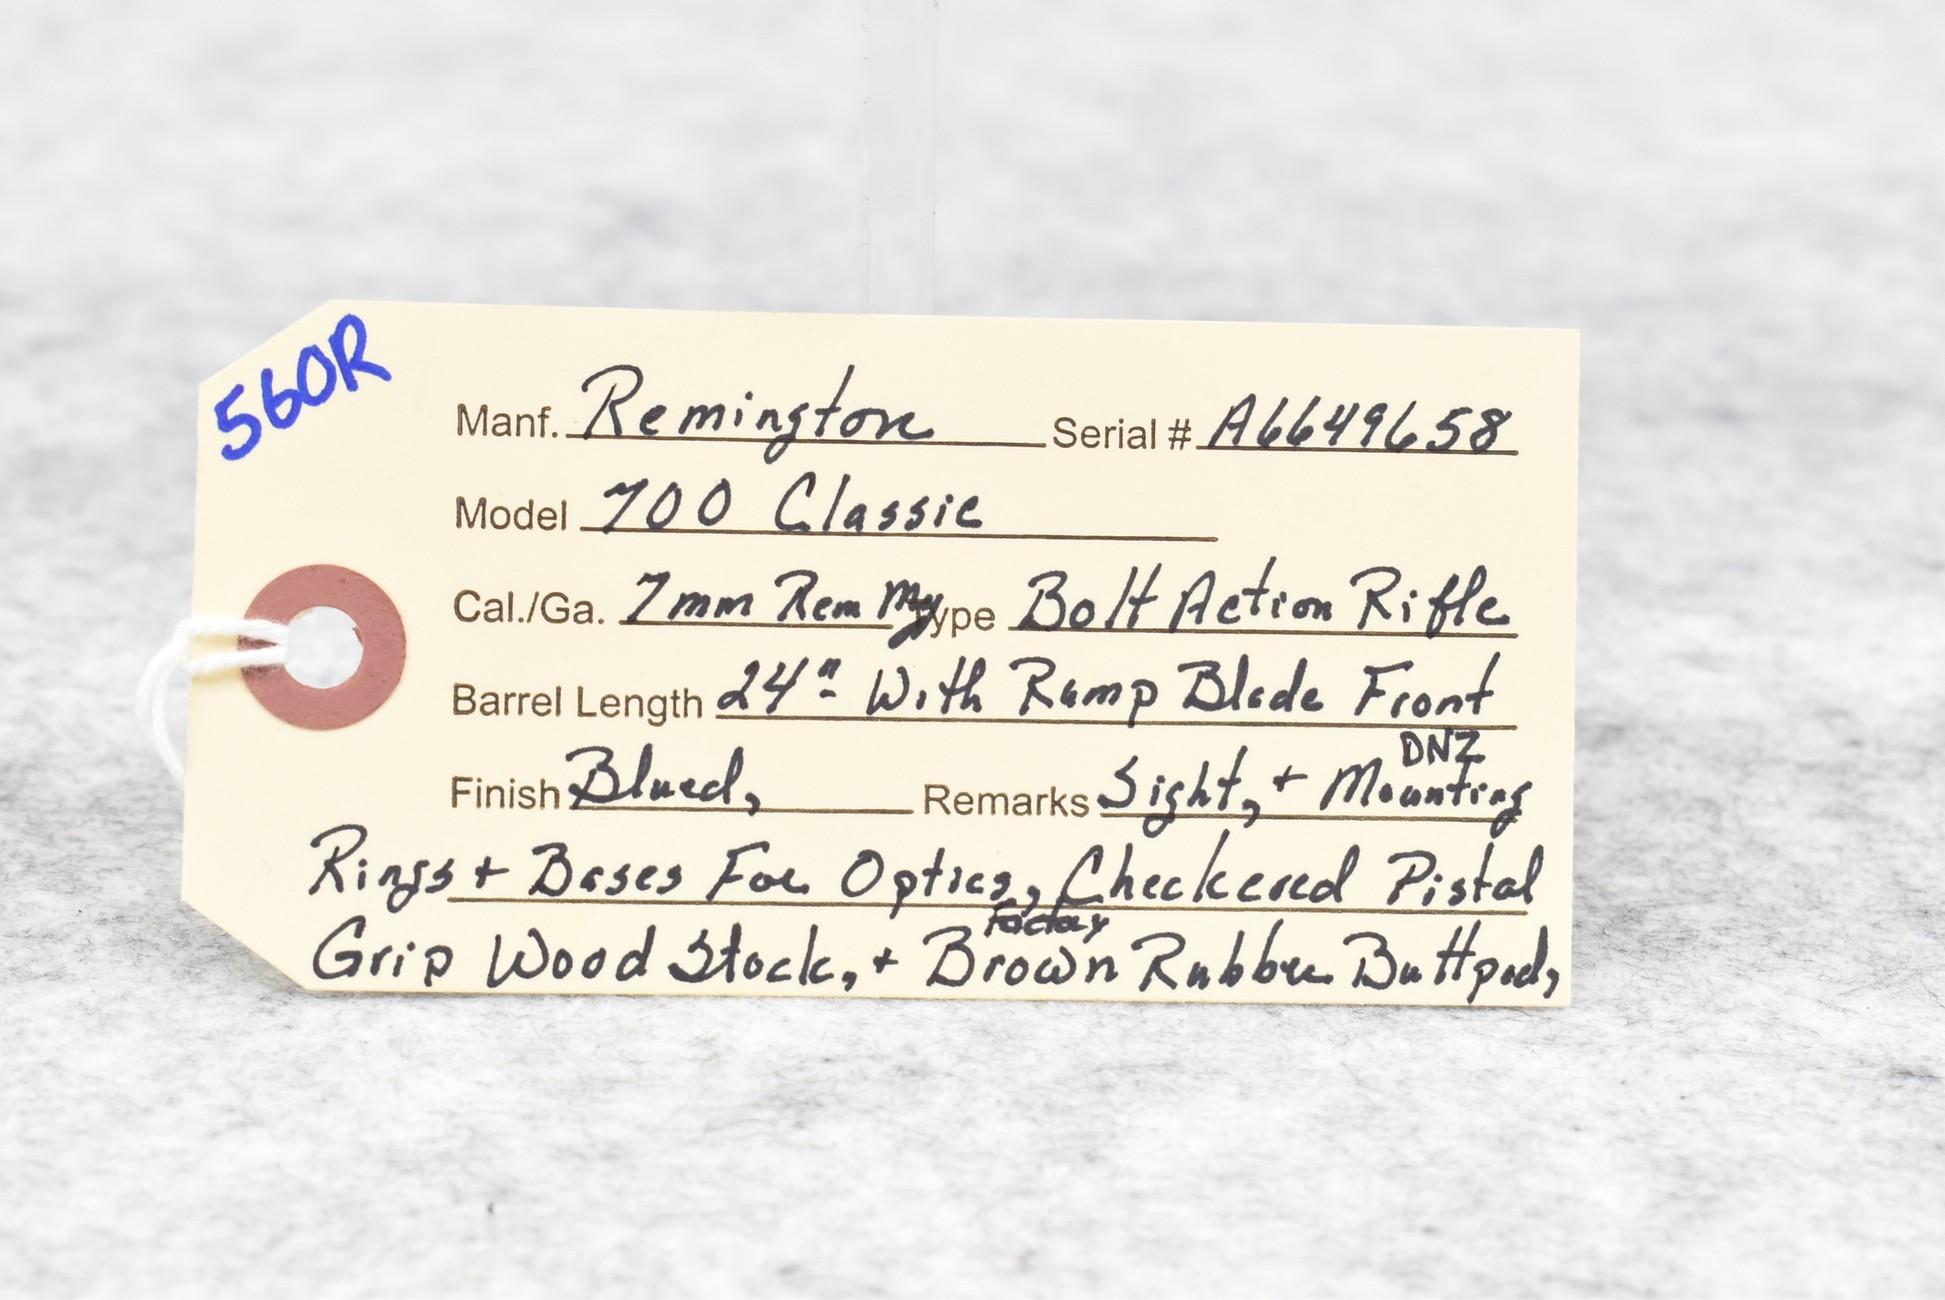 560R
Manf. Remington Serial # A6649658
Model 700 Classic
Cal./Ga. 7mm Rem Mg Type Bolt Action Rifle
Barrel Length 24" With Ramp Blade Front
Finish Blued, Remarks Sight, + DNZ Mounting
Rings + Bases For Optics, Checkered Pistal
Grip Wood Stock, + Factory Brown Rubber Buttpad,